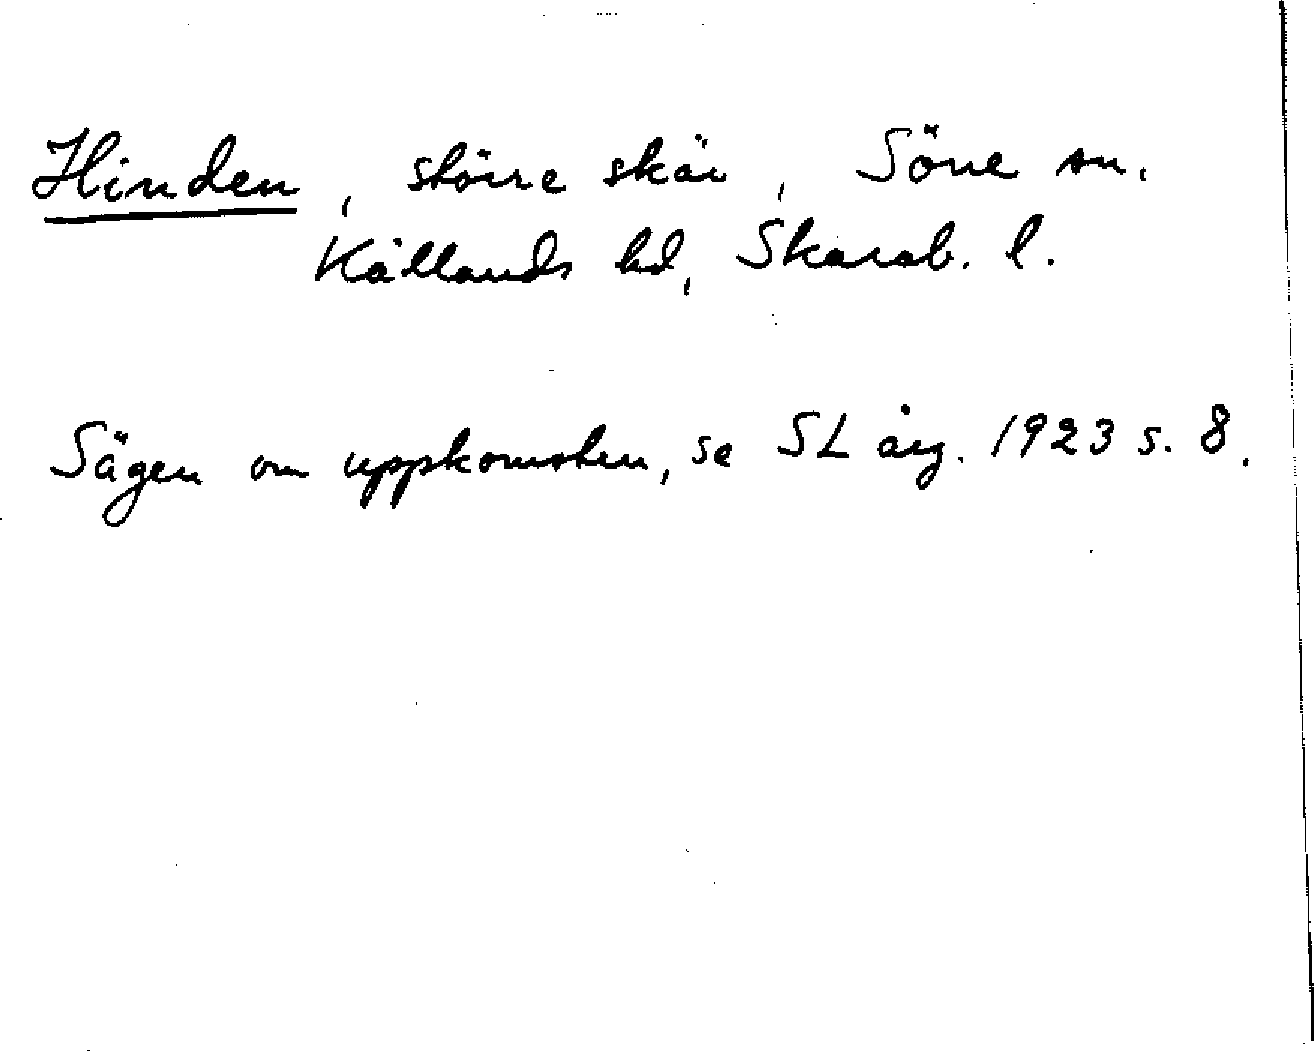 Hinden, större skär, Söne sn.
Kållands hd, Skarab. l.
Sägen om uppkomsten, se SL årg. 1923 s. 8.